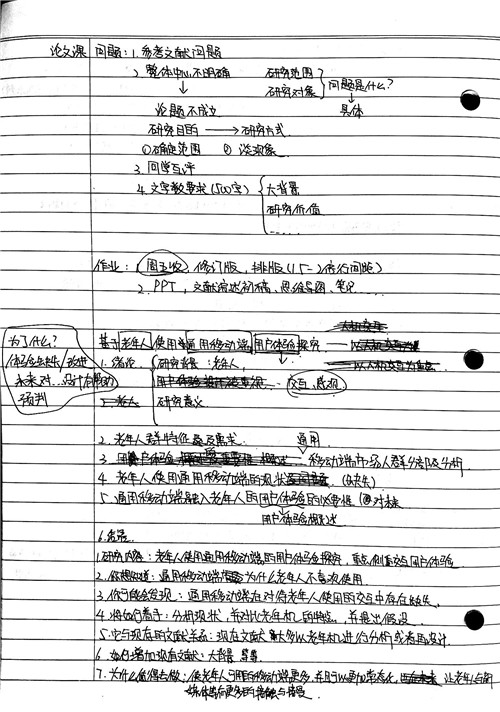 论文课 问题：1. 参考文献问题
2. 整体中心不明确 研究范围 研究对象 问题是什么？
论题不成立 具体
研究目的 → 研究方式
①确定范围 ② 谈现象
3. 同学互评
4. 文字数要求（500字） 大背景
研究价值
……
作业：1. 周五收，修订版，排版（1.5-2倍行间距）
2. PPT，文献综述初稿、思维导图、笔记……
为了什么？
改进
未来对
预判
基于老年人使用通用移动端用户体验探究
1. 绪论 研究背景：老年人，
交互，感观
研究意义
2. 老年人群特征及需求 通用
3. 移动端市场人群分层及分析
4. 老年人使用通用移动端的现状（缺失）
5. 通用移动端融入老年人的用户体验的必要性
用户体验概述
6. 结论
1. 研究内容：老年人使用通用移动端的用户体验探究，重点侧重交互用户体验
2. 通用移动端为什么老年人不喜欢使用
3. 你可能会发现：通用移动端在对待老年人使用的交互中存在缺失
4. 将如何着手：分析现状，并对比老年机，并提出假设
5. 它与现在的文献关系：现在文献大多以老年机进行分析或者再设计
6. 如何增加现有文献：大背景
7. 为什么值得去做：使老年人可用的移动端更多，让老年人与新
媒体有更多的接触与接受